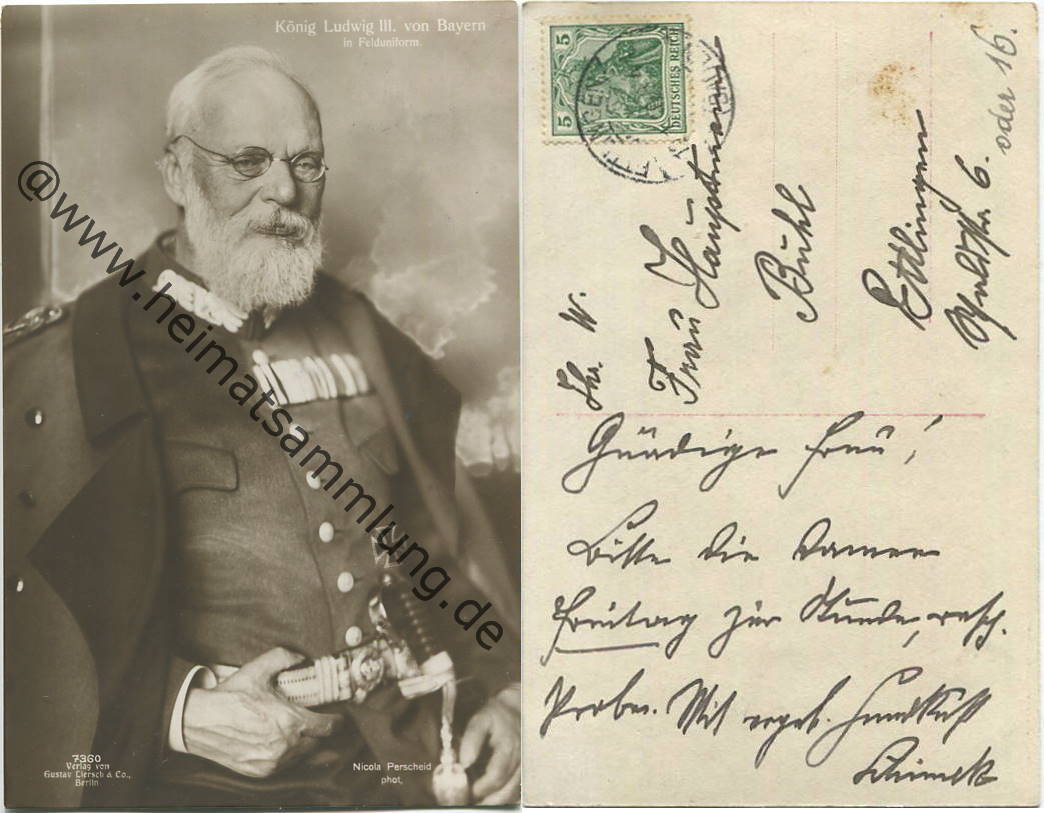 König Ludwig III. von Bayern
in Felduniform.
@www.heimatsammlung.de
7360
Verlag von
Gustav Liersch & Co.,
Berlin
Nicola Perscheid
phot.
5 5
DEUTSCHES REICH
Ihr. W.
Frau Hauptmann
Buhl
Ettlingen
6.
oder 16.
Gnädige Frau!
Bitte die Damen
Freitag zur Stunde, resp.
Probe. Mit ergeb. Handkuß